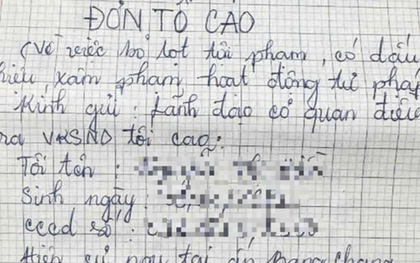 ĐƠN TỐ CÁO
(Về việc bỏ lọt tội phạm, có dấu
hiệu xâm phạm hoạt động tư pháp
Kính gửi: Lãnh đạo cơ quan điều
tra VKSND tối cao:
Tôi tên:
Sinh ngày:
cccd số:
Hiện cư ngụ tại ấp